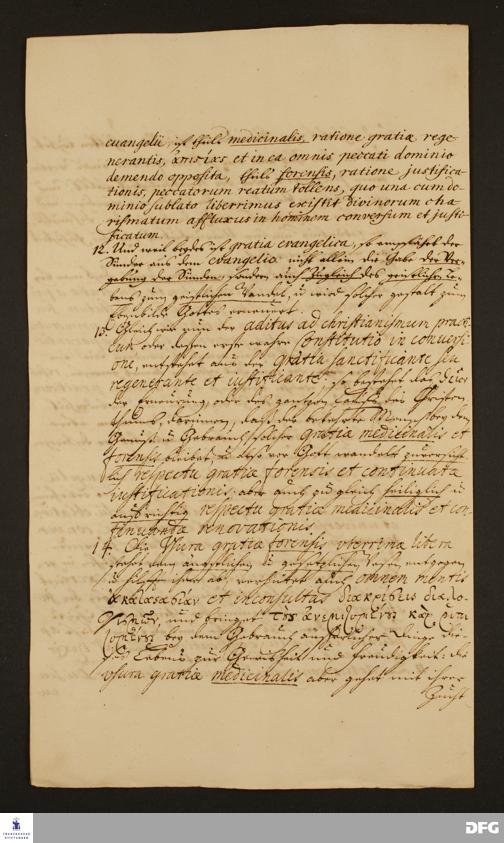 euangelii, ist theils medicinalis, ratione gratiæ rege-
nerantis, et in ea omnis peccati dominio
demendo opposita, theils forensis, ratione justifica-
tionis, peccatorum reatum tollens, quo una cum do-
minio sublato liberrimus existit divinorum cha-
rismatum affluxus in hominem conversum et justi-
ficatum.
12. Und weil beydes ist gratia evangelica, so empfähet der
Sünder aus dem evangelio nicht allein die Gabe der Ver-
gebung der Sünden, sondern auch zugleich des geistlichen Le-
bens zum geistlichen Wandel, u. wird solcher gestalt zum
Ebenbilde Gottes erneuert.
13. Gleich wie nun der aditus ad christianismum practi-
cum oder dessen erste wahre constitutio in conversi-
one, entstehet aus der gratia sanctificante seu
regenerante et iustificante: so bestehet das
der Erneuerung, oder des gantzen Lauffs des Christen-
thums, darinnen, daß der bekehrte Mensch bey dem
Genuß u. Gebrauch solcher gratiæ medicinalis et
forensis bleibet u. also vor Gott wandelt
respectu gratiæ forensis et continuatæ
iustificationis; aber auch zu gleich heiliglich u.
aufrichtig respectu gratiæ medicinalis et con-
tinuandæ renovationis.
14. Die Usura gratiæ forensis, uterrima litera
stehet dem ängstlichen u. gesetzlichen Wesen entgegen
u. hilfft ihm ab, verhütet auch omnem mentis
ἀκαταστασίαν et inconsultas διακρίσεις διαλο-
γισμῶν, und bringet
bey dem Gebrauch äusserlicher Dinge die-
ses Lebens zur Gewißheit und Freudigkeit: die
Usura gratiæ medicinalis aber gehet mit ihrer
Zucht
FRANCKESCHE
STIFTUNGEN
DFG